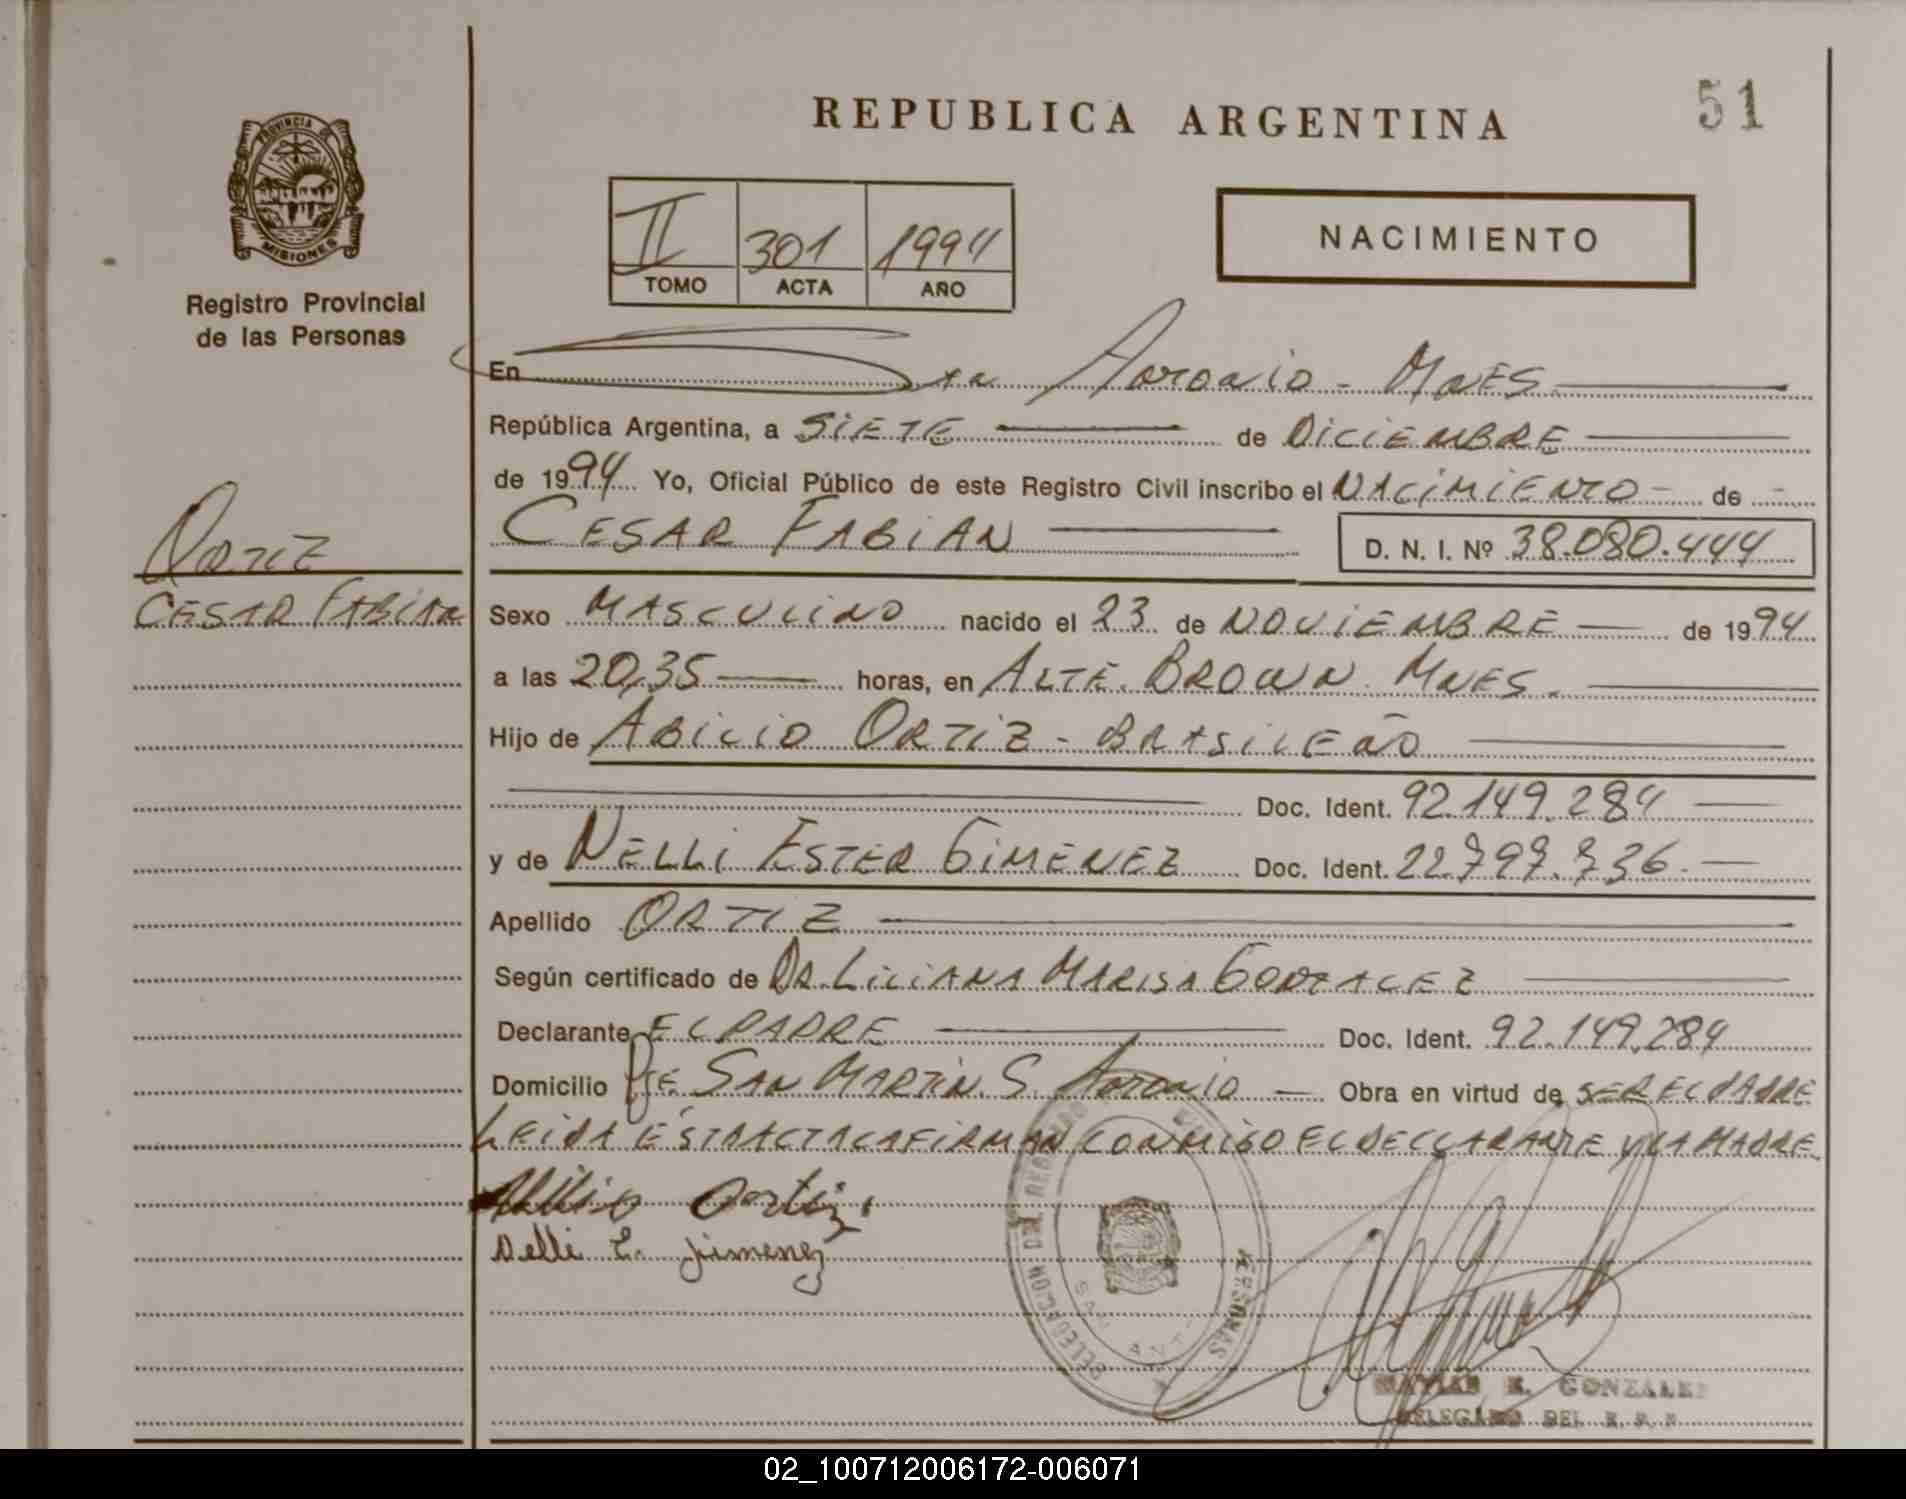 REPUBLICA ARGENTINA
51
PROVINCIA DE
MISIONES
Registro Provincial
de las Personas
II 301 1994
TOMO ACTA AÑO
NACIMIENTO
En San Antonio - Mnes
República Argentina, a SiETE de DiCiEMBRE
de 1994 Yo, Oficial Público de este Registro Civil inscribo el NACiMiENTO - de -
CESAR FABiAN D. N. I. Nº 38.080.444
ORTIZ
CESAR FABIAN
Sexo MASCULiNO nacido el 23 de NOViEMBRE de 1994
a las 20,35 horas, en ALTE. BROWN MNES.
Hijo de ABiLiO ORTiZ - BRASiLEÑO
Doc. Ident. 92.149.284
y de NELLi ESTER GiMENEZ Doc. Ident. 22.797.736.-
Apellido ORTIZ
Según certificado de DRA. LiLiANA MARiSA GONZALEZ
Declarante EL PADRE Doc. Ident. 92.149.284
Domicilio Pje. SAN MARTiN. S. ANTONiO - Obra en virtud de SER EL PADRE
LEiDA ESTA ACTA LA FiRMAN CONMiGO EL DECLARANTE Y LA MADRE.
Ortiz
Nelli E. jimenez
DELEGACION DEL REGISTRO
PERSONAS
SAN ANT
K. GONZALEZ
DELEGADO DEL R. P. P.
02_100712006172-006071